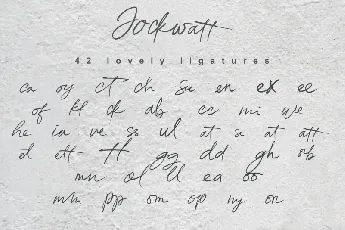 Jockwatt
42 lovely ligatures
ca oy ct ch en ex ee
of ck ab cc mi we
he in ve ss ul at at att
ct ett tt gg dd gh
mn ol ll ea oo
mm pp om op ny on